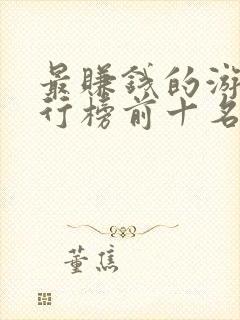 最赚钱的游
行榜前十名
董焦